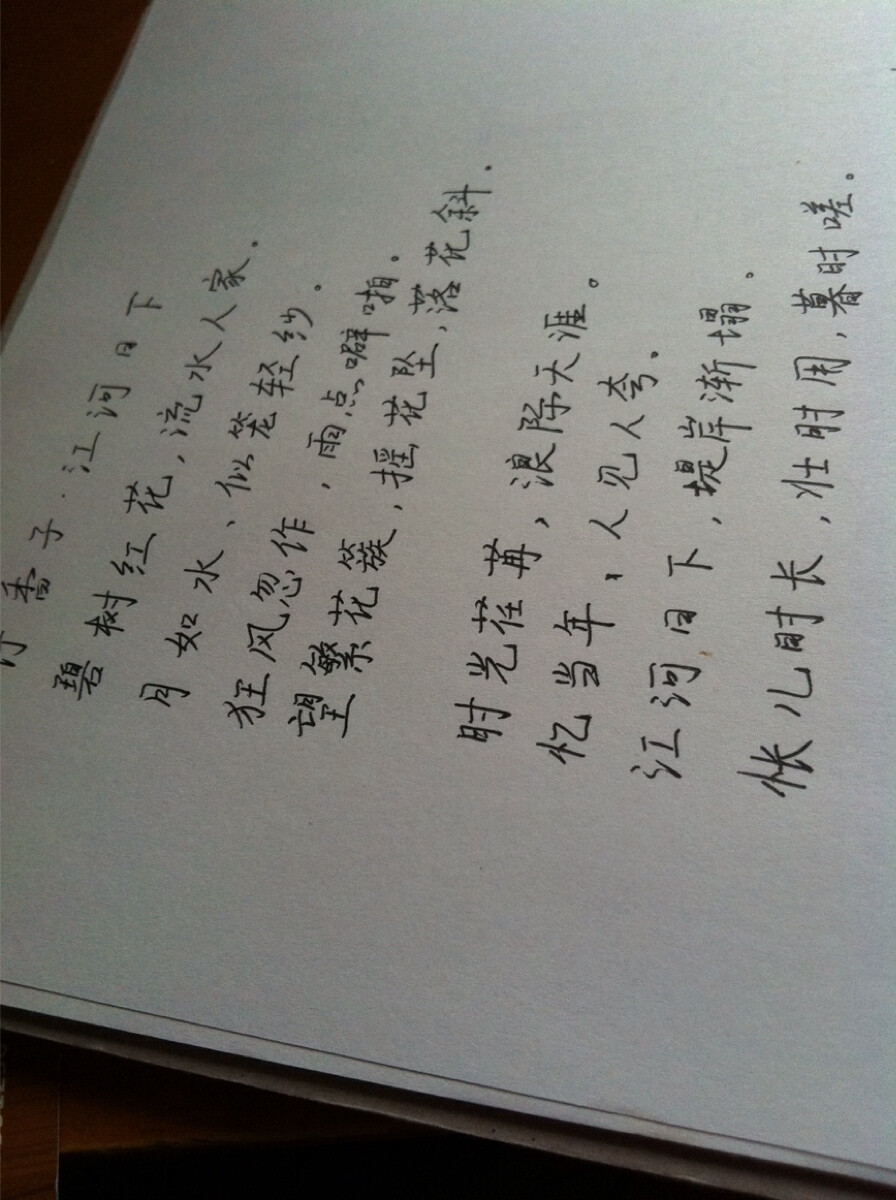 行香子·江河日下
碧树红花,流水人家。
月如水、似笼轻纱.
狂风忽作,雨点噼啪。
望繁花簇,摇花坠,落花斜.
时光荏苒,浪际天涯。
忆当年、人见人夸。
江河日下,堤岸渐塌.
怅儿时长,壮时用,暮时嗟。